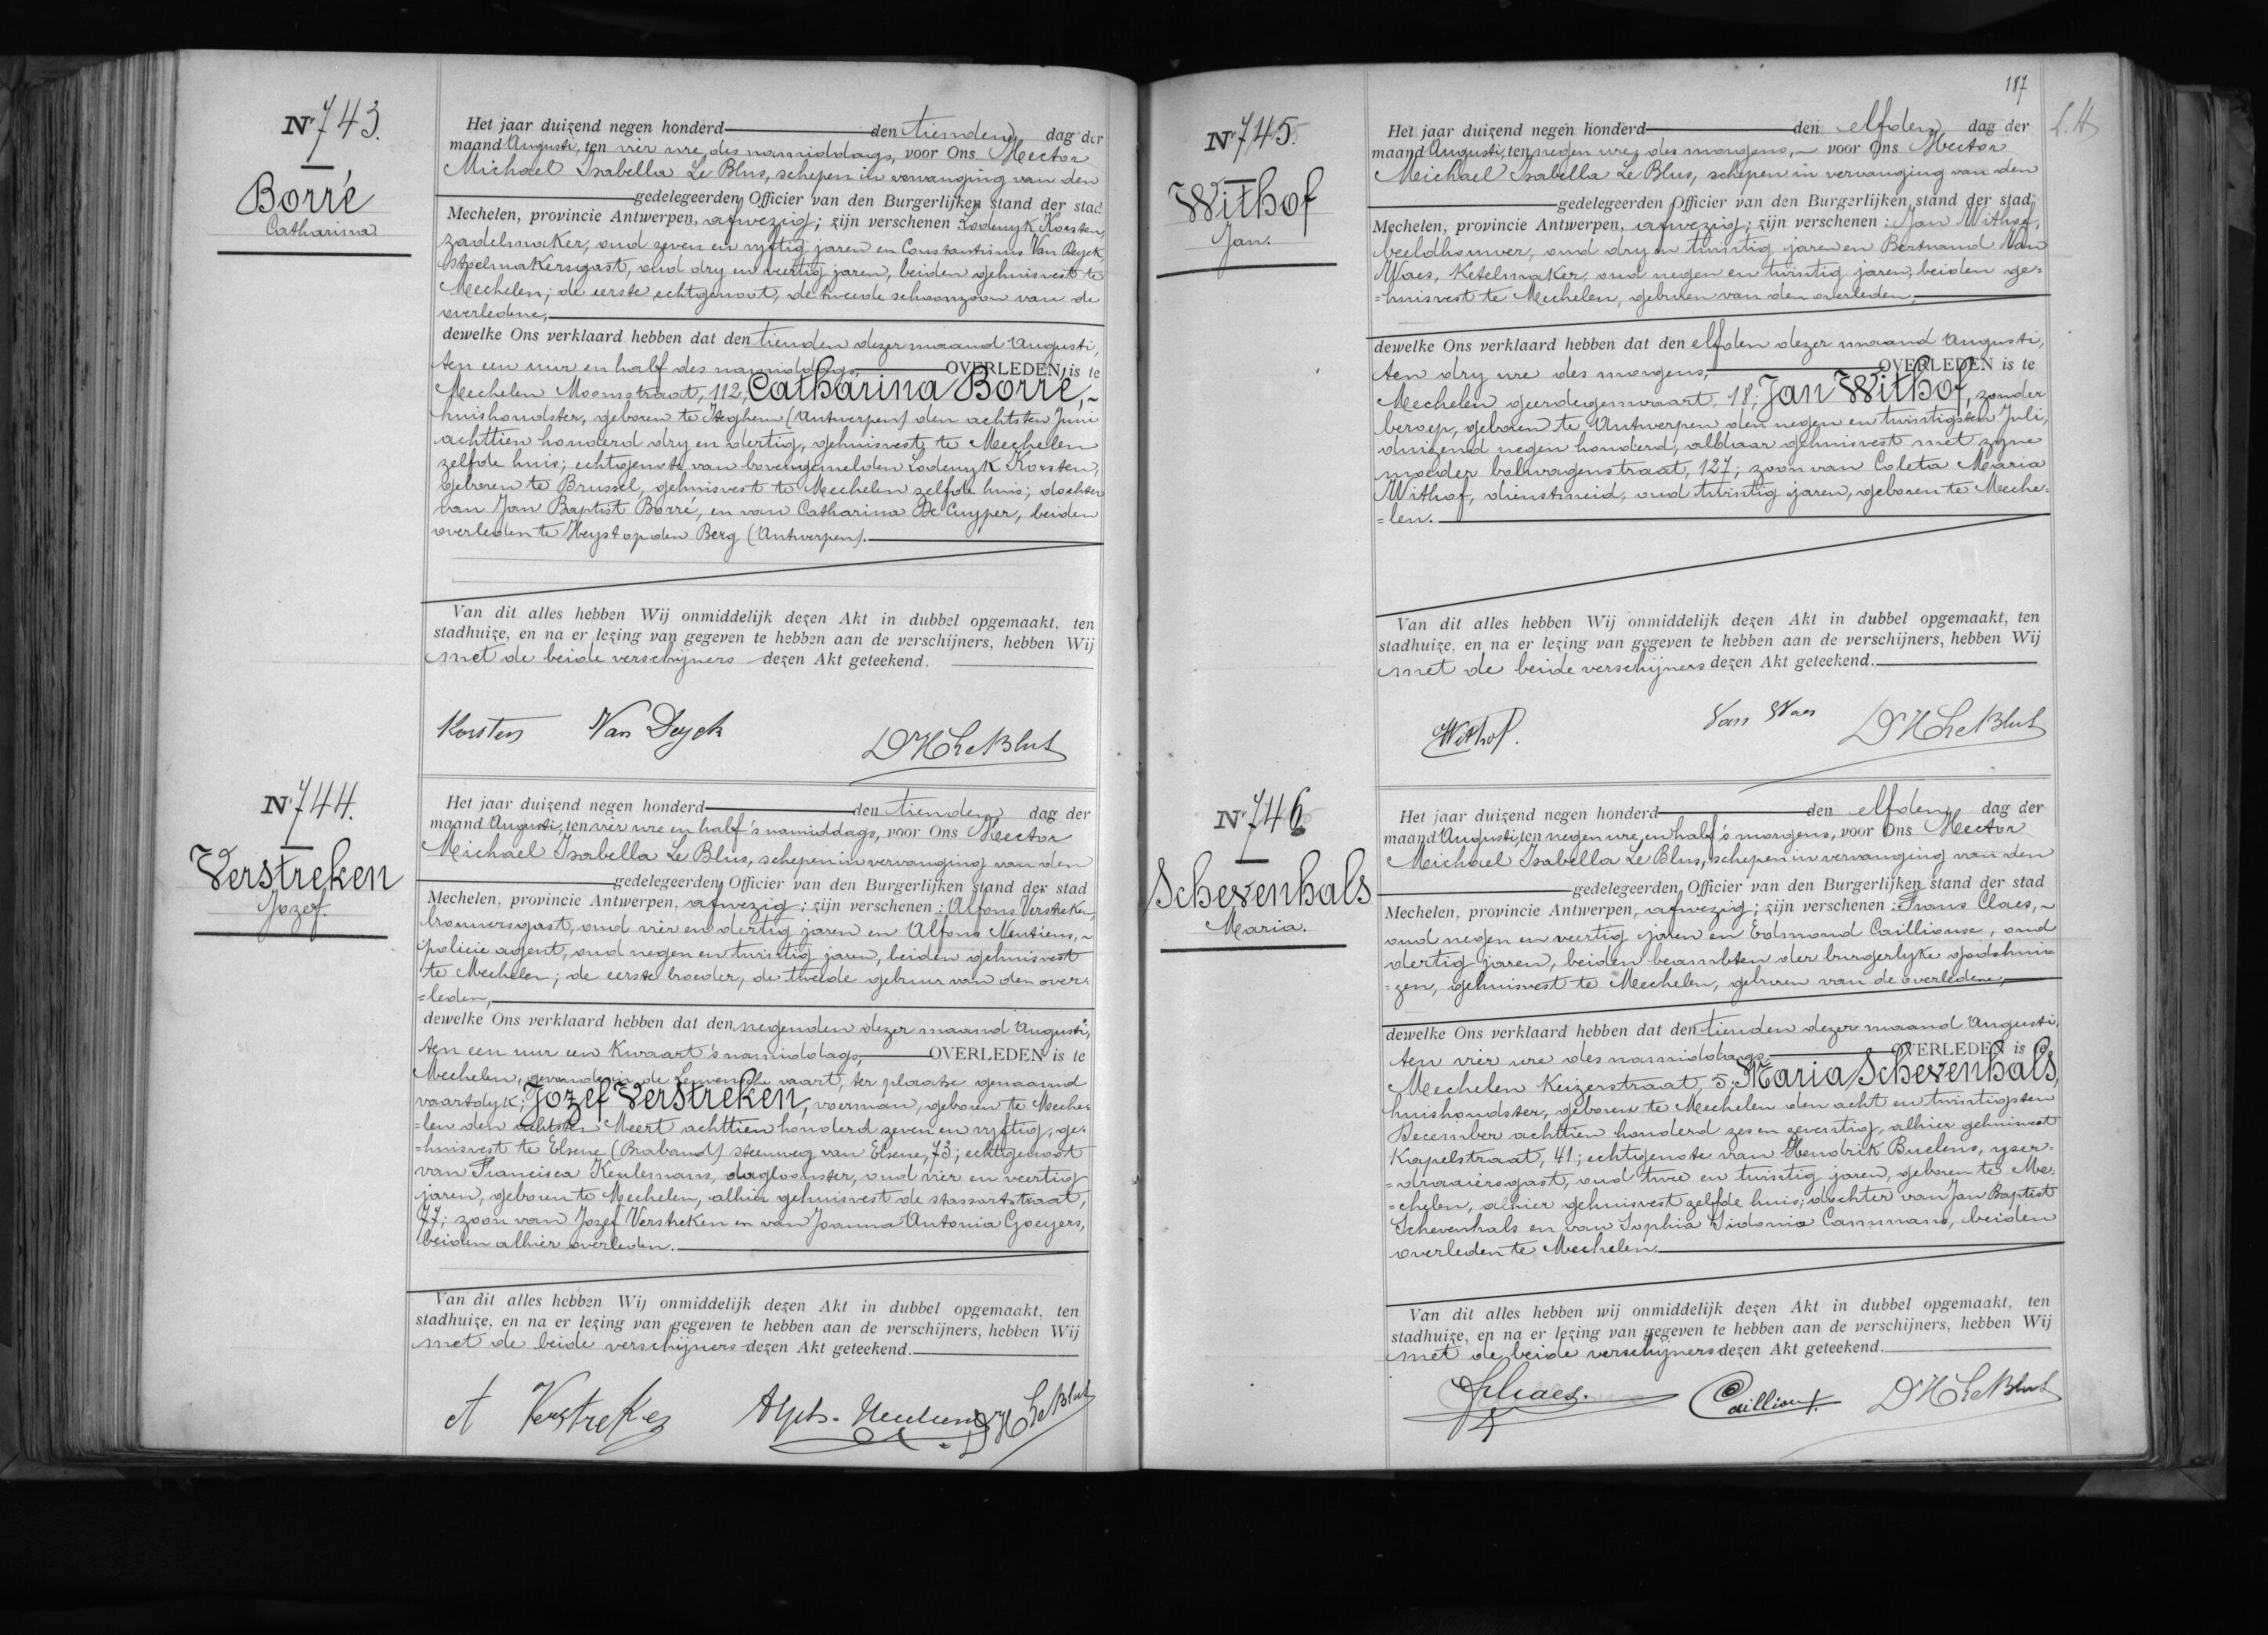 Nr 743.
Borré
Catharina
Het jaar duizend negen honderd den tienden dag der
maand Augusti, ten vier ure des namiddags, voor Ons Hector
Michael Isabella Le Blus, schepen in vervanging van den
gedelegeerden Officier van den Burgerlijken stand der stad
Mechelen, provincie Antwerpen, afwezig; zijn verschenen: Lodewyk Korsten,
zadelmaker, oud zeven en vyftig jaren en Constantinus Van Deyck,
stoelmakersgast, oud dry en veertig jaren, beiden gehuisvest te
Mechelen; de eerste echtgenoot, de tweede schoonzoon van de
overledene,
dewelke Ons verklaard hebben dat den tienden dezer maand Augusti,
ten een uur en half des namiddags, OVERLEDEN is te
Mechelen Moonsstraat, 112, Catharina Borré,
huishoudster, geboren te Iteghem (Antwerpen) den achtsten Juni
achttien honderd dry en dertig, gehuisvest te Mechelen
zelfde huis; echtgenote van bovengemelden Lodewyk Korsten,
geboren te Brussel, gehuisvest te Mechelen zelfde huis; dochter
van Jan Baptist Borré, en van Catharina De Cuyper, beiden
overleden te Heyst op den Berg (Antwerpen).
Van dit alles hebben Wij onmiddelijk dezen Akt in dubbel opgemaakt, ten
stadhuize, en na er lezing van gegeven te hebben aan de verschijners, hebben Wij
met de beide verschijners dezen Akt geteekend.
Korsten Van Deyck Dr H Le Blus
Nr 744.
Verstreken
Jozef.
Het jaar duizend negen honderd den tienden dag der
maand Augusti, ten vier ure en half 's namiddags, voor Ons Hector
Michael Isabella Le Blus, schepen in vervanging van den
gedelegeerden Officier van den Burgerlijken stand der stad
Mechelen, provincie Antwerpen, afwezig; zijn verschenen: Alfons Verstreken,
brouwersgast, oud vier en dertig jaren en Alfons Neutiens,
policie agent, oud negen en twintig jaren, beiden gehuisvest
te Mechelen; de eerste broeder, de tweede gebuur van den over=
=leden,
dewelke Ons verklaard hebben dat den negenden dezer maand Augusti,
ten een uur een kwaart 's namiddags, OVERLEDEN is te
Mechelen, gevonden in de Leuvensche vaart, ter plaatse genaamd
vaartdyk; Jozef Verstreken, voerman, geboren te Meche=
=len den achtsten Meert achttien honderd zeven en vyftig, ge=
=huisvest te Elsene (Braband) steenweg van Elsene, 73; echtgenoot
van Francisca Keulemans, dagloonster, oud vier en veertig
jaren, geboren te Mechelen, alhier gehuisvest de stassartstraat,
77; zoon van Jozef Verstreken en van Joanna Antonia Goeyers,
beiden alhier overleden.
Van dit alles hebben Wij onmiddelijk dezen Akt in dubbel opgemaakt, ten
stadhuize, en na er lezing van gegeven te hebben aan de verschijners, hebben Wij
met de beide verschijners dezen Akt geteekend.
A Verstreken Alph. Neutiens Dr H Le Blus
187
L. H
Nr 745.
Withof
Jan.
Het jaar duizend negen honderd den elfden dag der
maand Augusti, ten negen ure des morgens, voor Ons Hector
Michael Isabella Le Blus, schepen in vervanging van den
gedelegeerden Officier van den Burgerlijken stand der stad
Mechelen, provincie Antwerpen, afwezig; zijn verschenen: Jan Withof,
beeldhouwer, oud dry en twintig jaren en Bertrand Van
Waes, Ketelmaker, oud negen en twintig jaren, beiden ge=
=huisvest te Mechelen, geburen van den overleden,
dewelke Ons verklaard hebben dat den elfden dezer maand Augusti,
ten dry ure des morgens, OVERLEDEN is te
Mechelen geerdegemvaart, 18, Jan Withof, zonder
beroep, geboren te Antwerpen den negen en twintigsten Juli,
duizend negen honderd, aldaar gehuisvest met zyne
moeder bolwagenstraat, 127; zoon van Coleta Maria
Withof, dienstmeid, oud twintig jaren, geboren te Meche=
=len.
Van dit alles hebben Wij onmiddelijk dezen Akt in dubbel opgemaakt, ten
stadhuize, en na er lezing van gegeven te hebben aan de verschijners, hebben Wij
met de beide verschijners dezen Akt geteekend.
Withof. Van Waes Dr H Le Blus
Nr 746
Schevenhals
Maria.
Het jaar duizend negen honderd den elfden dag der
maand Augusti, ten negen ure en half 's morgens, voor Ons Hector
Michael Isabella Le Blus, schepen in vervanging van den
gedelegeerden Officier van den Burgerlijken stand der stad
Mechelen, provincie Antwerpen, afwezig; zijn verschenen: Frans Claes,
oud negen en veertig jaren en Edmond Caillioux, oud
dertig jaren, beiden beambten der burgerlyke godshui=
=zen, gehuisvest te Mechelen, geburen van de overledene,
dewelke Ons verklaard hebben dat den tienden dezer maand Augusti,
ten vier ure des namiddags, OVERLEDEN is te
Mechelen Keizerstraat, 5, Maria Schevenhals,
huishoudster, geboren te Mechelen den acht en twintigsten
December achttien honderd zes en zeventig, alhier gehuisvest
Kapelstraat, 41; echtgenote van Hendrik Buelens, yser=
=draaiersgast, oud twee en twintig jaren, geboren te Me=
=chelen, alhier gehuisvest zelfde huis; dochter van Jan Baptist
Schevenhals en van Sophia Sidonia Cammans, beiden
overleden te Mechelen.
Van dit alles hebben wij onmiddelijk dezen Akt in dubbel opgemaakt, ten
stadhuize, en na er lezing van gegeven te hebben aan de verschijners, hebben Wij
met de beide verschijners dezen Akt geteekend.
F Claes. Caillioux. Dr H Le Blus